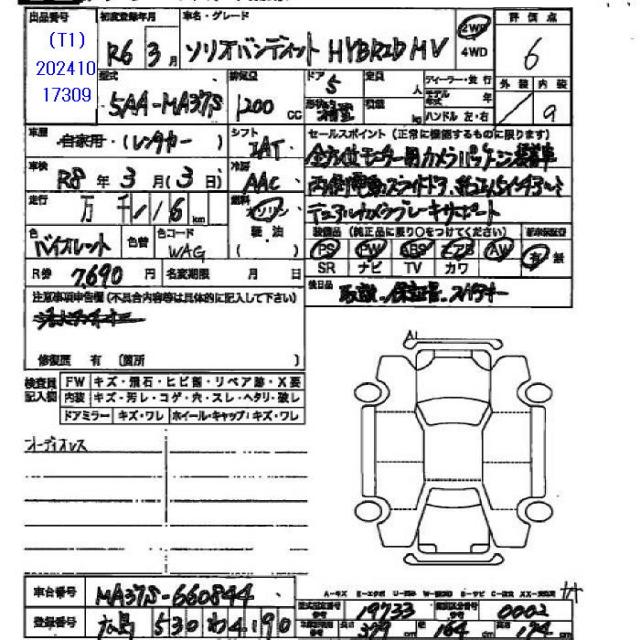 出品番号 初度登録年月 車名・グレード 評価点
(T1)
202410
17309
R6年3月 ソリオバンディット HYBRID MV 2WD 4WD 6
型式 排気量 ドア 定員 ディーラー・並行 外装 内装
5AA-MA37S 1200 cc 5 人 モデル年式 年 ハンドル 左・右 9
車歴 自家用・(レンタカー) シフト IAT セールスポイント (正常に機能するものに限ります)
全方位モニター用カメラパッケージ装着車
車検 R8年3月(3日) 冷房 AAC 両側電動スライドドア
走行 万千116km 燃料 ガソリン 軽油 ( ) デュアルカメラブレーキサポート
色 バイオレット 色替 色コード WAG
装備品 (純正品に限り○をつけてください) 新車保証書
PS PW ABS エアB AW 有 無
SR ナビ TV カワ
R券 7,690円 名変期限 月 日
後日品 取説・保証書・スペアキー
注意事項申告欄 (不具合内容等は具体的に記入して下さい)
修復歴 有 (箇所 )
検査員記入欄
FW キズ・飛石・ヒビ割・リペア跡・X要
内装 キズ・汚レ・コゲ・穴・スレ・ヘタリ・破レ
ドアミラー キズ・ワレ ホイール・キャップ:キズ・ワレ
オーディオレス
A1
車台番号 MA37S-660844
登録番号 広島 530 わ 4190
型式指定番号 19733 類別区分番号 0002
長さ 379 cm 幅 164 cm 高さ 174 cm